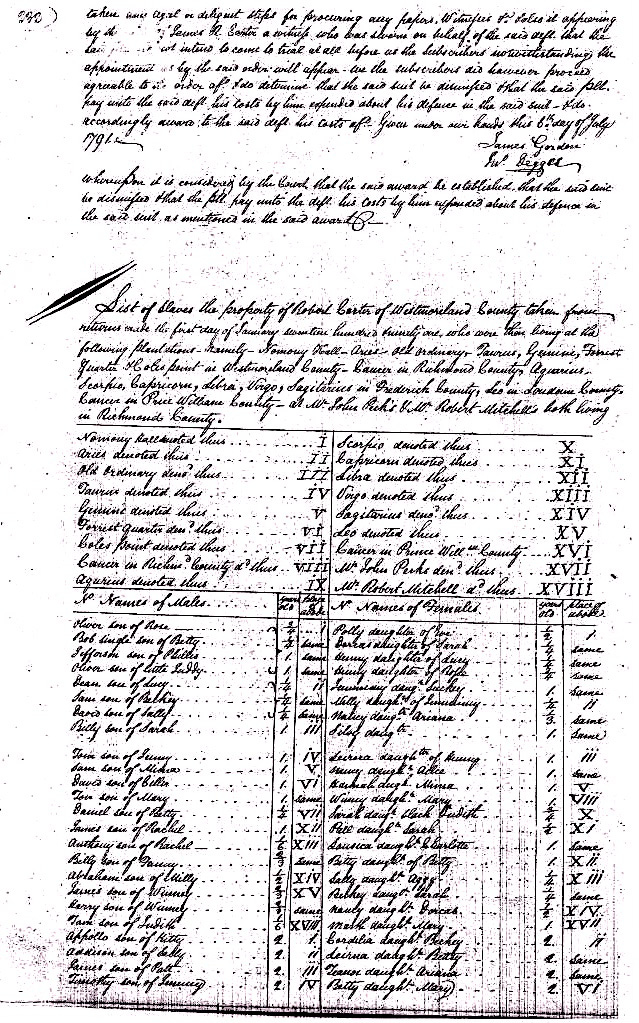 292)
taken any legal or diligent steps for procuring any papers. Witnesses &c. Unless it appearing
by the James R. Easton a witness who was sworn on behalf of the said deft. that the
said not intend to come to trial at all before us the subscribers notwithstanding the
appointment as by the said order will appear. we the subscribers did however proceed
agreeable to order aft. & do determine that the said suit be dismissed & that the said plt.
pay unto the said deft. his costs by him expended about his defence in the said suit. & do
accordingly award to the said deft. his costs aft. Given under our hands this 6th day of July
1791.
James Gordon
Jno. Digges
Whereupon it is considered by the Court that the said award be established, that the said suit
be dismissed & that the plt. pay unto the deft. his costs by him expended about his defence in
the said suit as mentioned in the said award
List of Slaves the property of Robert Carter of Westmoreland County taken from
returns made the first day of January seventeen hundred ninety one, who were then living at the
following plantations. namely Nomony Hall - Aries - Old Ordinary, Taurus, Gemini, Forrest
Quarter & Coles point in Westmoreland County - Cancer in Richmond County, Aquarius,
Scorpio, Capricorn, Libra, Virgo, Sagitarius in Frederick County, Leo in Loudoun County,
Cancer in Prince William County - at Mr. John Peck's & Mr. Robert Mitchell's both living
in Richmond County.
Nomony Hall denoted thus I Scorpio denoted thus X
Aries denoted thus II Capricorn denoted thus XI
Old Ordinary deno. thus III Libra denoted thus XII
Taurus denoted thus IV Virgo denoted thus XIII
Gemini denoted thus V Sagitarius deno. thus XIV
Forrest Quarter den. thus VI Leo denoted thus XV
Coles point denoted thus VII Cancer in Prince Will County XVI
Cancer in Richmd. County d. thus VIII Mr. John Pecks den. thus XVII
Aquarius denoted thus IX Mr. Robert Mitchell d. thus XVIII
No. Names of Males. years old place of above No. Names of Females. years old place of above
Oliver son of Rose Polly daughter of 1
Bob single son of Betty same Dorcas daughter of Sarah same
Jefferson son of Phillis 1 same daughter of Lucy same
Oliver son of Little Juddy 1 same daughter of Rose same
Dean son of Lucy ii daug. 1 same
Sam son of Beckey same Milly daugh. of ii
David son of Sally same Nancy daugh. Ariana same
Billy son of Sarah 1 iii daugh. 1 same
Tom son of Jenny 1 iV daugh. of 1 iii
Sam son of Mima 1 V daugh. Alice 1 same
David son of Ellin 1 Vi Hannah daugh. Mima 1 V
Tom son of Mary 1 same Winny daugh. Mary 1 Viii
Daniel son of Betty Vii Sarah daug. Judith X
James son of Rachel 1 Xii daugh. Sarah Xi
Anthony son of Rachel Xiii daugh. Charlotte 1 same
Billy son of Fanny same Betty daugh. of Betty 1 Xii
Abraham son of Milly XiV Sally daugh. Aggy Xiii
James son of Winney XV Beckey daug. Sarah same
Harry son of Winney same Nancy daugh. Dorcas XiV
Tom son of Judith XVii daugh. Mary 1 XVii
Appollo son of Kitty 2 1 Cordelia daugh. Beckey 2 ii
Addison son of 2 ii daugh. Betty 2 same
James son of Patt 2 iii daugh. Ariana 2 same
Timothy son of Jemimy 2 iV Betty daugh. Mary 2 Vi